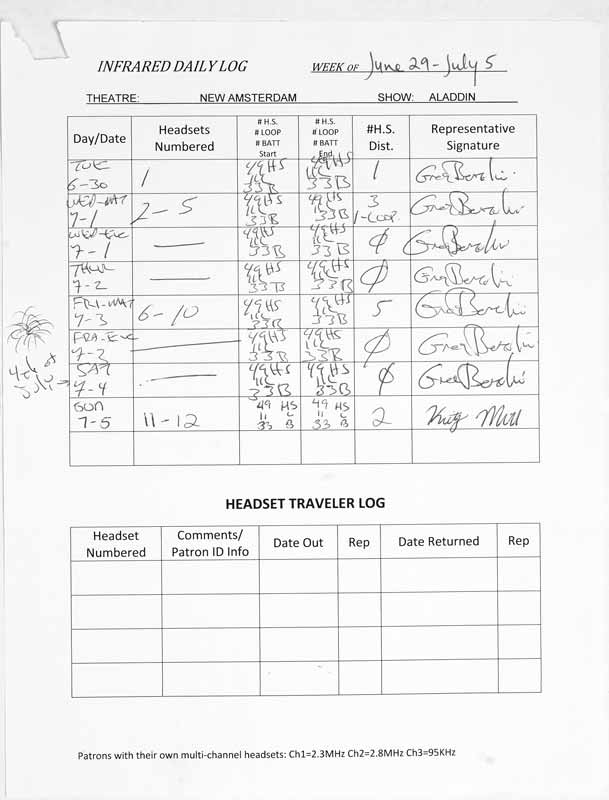 INFRARED DAILY LOG WEEK OF June 29 - July 5
THEATRE: NEW AMSTERDAM SHOW: ALADDIN
Day/Date Headsets Numbered # H.S. # LOOP # BATT Start # H.S. # LOOP # BATT End #H.S. Dist. Representative Signature
TUE 6-30 1 49HS 11L 33B 49HS 11L 33B 1
WED-MAT 7-1 2-5 49HS 11L 33B 49HS 11L 33B 3 1-LOOP
WED-EVE 7-1 — 49HS 11L 33B 49HS 11L 33B Ø
THUR 7-2 — 49HS 11L 33B 49HS 11L 33B Ø
FRI-MAT 7-3 6-10 49HS 11L 33B 49HS 11L 33B 5
FRI-EVE 7-3 — 49HS 11L 33B 49HS 11L 33B Ø
4th of July → SAT 7-4 — 49HS 11L 33B 49HS 11L 33B Ø
SUN 7-5 11-12 49 HS 11 L 33 B 49 HS 11 L 33 B 2
HEADSET TRAVELER LOG
Headset Numbered Comments/ Patron ID Info Date Out Rep Date Returned Rep
Patrons with their own multi-channel headsets: Ch1=2.3MHz Ch2=2.8MHz Ch3=95KHz